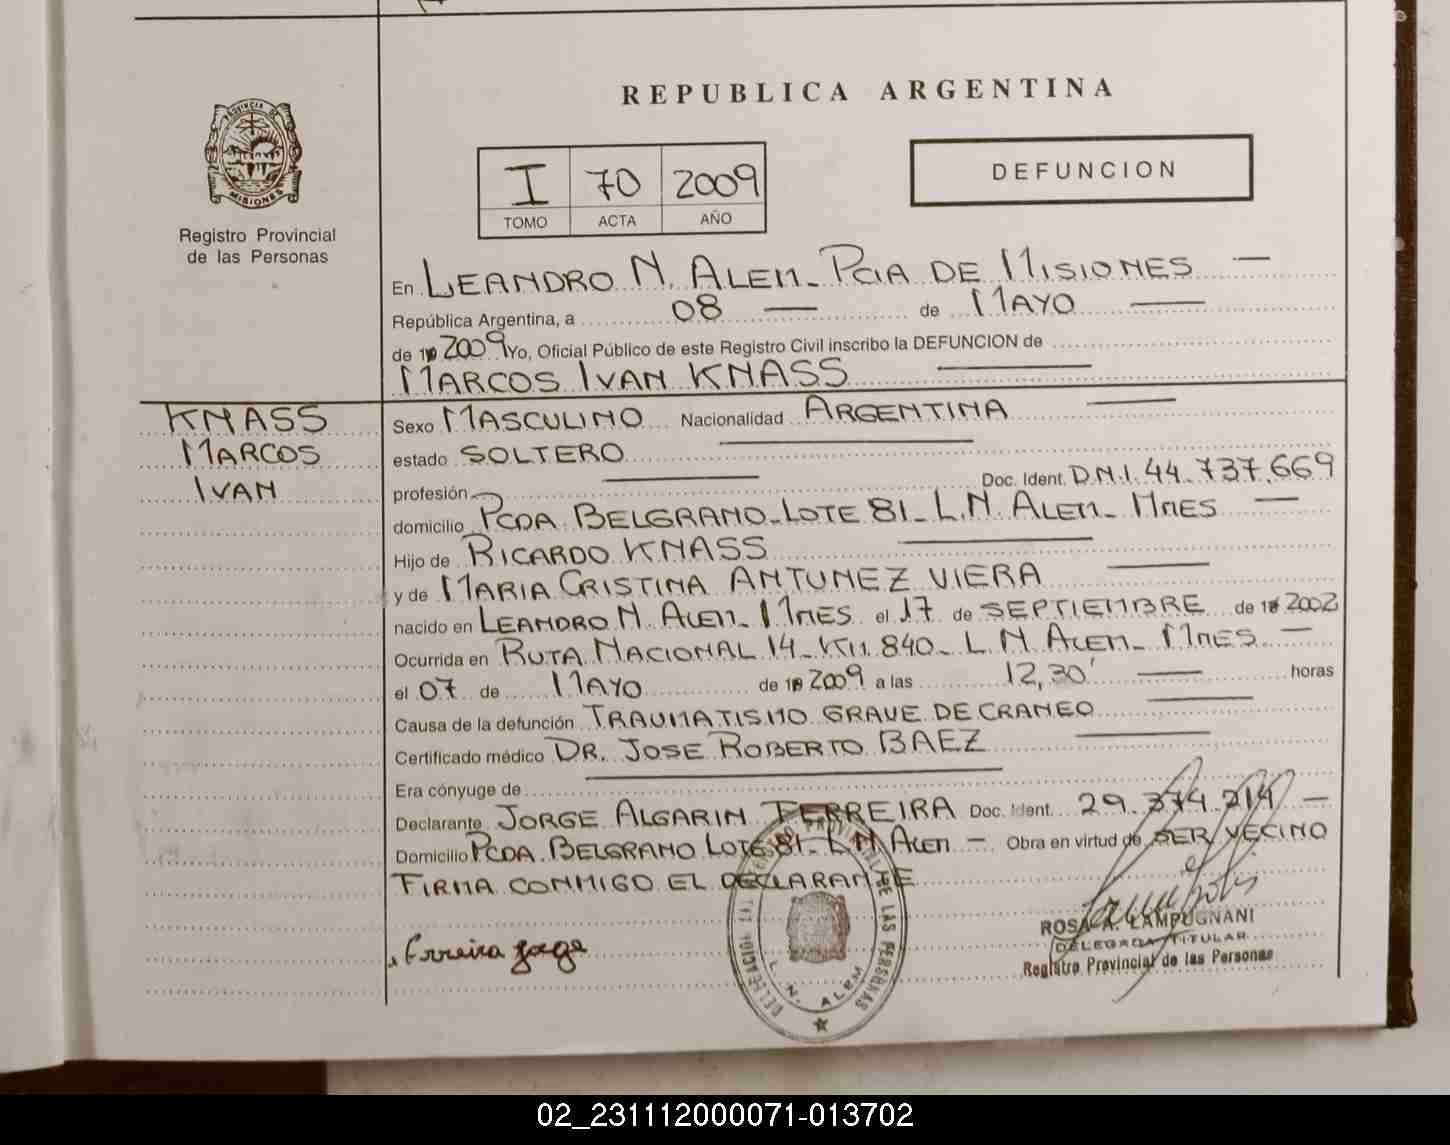 REPUBLICA ARGENTINA
PROVINCIA DE
MISIONES
Registro Provincial
de las Personas
I 70 2009
TOMO ACTA AÑO
DEFUNCION
En LEANDRO N. ALEM - PCIA DE MISIONES —
República Argentina, a 08 — de MAYO —
de 19 2009 Yo, Oficial Público de este Registro Civil inscribo la DEFUNCION de
MARCOS IVAN KNASS —
KNASS
MARCOS
IVAN
Sexo MASCULINO Nacionalidad ARGENTINA —
estado SOLTERO —
profesión — Doc. Ident. D.N.I. 44.737.669
domicilio PCDA. BELGRANO - LOTE 81 - L.N. ALEM - MNES —
Hijo de RICARDO KNASS —
y de MARIA CRISTINA ANTUNEZ VIERA —
nacido en LEANDRO N. ALEM - MNES el 17 de SEPTIEMBRE de 19 2002
Ocurrida en RUTA NACIONAL 14 - KM 840 - L.N. ALEM - MNES —
el 07 de MAYO de 19 2009 a las 12,30' — horas
Causa de la defunción TRAUMATISMO GRAVE DE CRANEO —
Certificado médico DR. JOSE ROBERTO BAEZ —
Era cónyuge de —
Declarante JORGE ALGARIN FERREIRA Doc. Ident. 29.374.214 —
Domicilio PCDA. BELGRANO LOTE 81 - L.N. ALEM — Obra en virtud de SER VECINO
FIRMA CONMIGO EL DECLARANTE
Ferreira Jorge
L. N. ALEM
ROSA A. LAMPUGNANI
DELEGADA TITULAR
Registro Provincial de las Personas
02_231112000071-013702